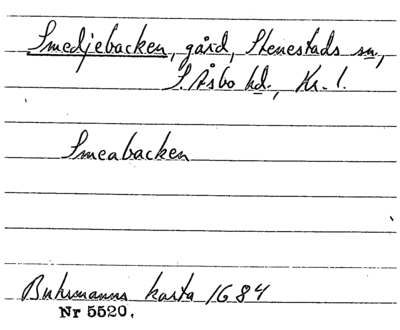 Smedjebacken, gård, Stenestads sn,
S. Åsbo hd., Kr. l.
Smeabacken
Buhrmanns karta 1684
Nr 5520.